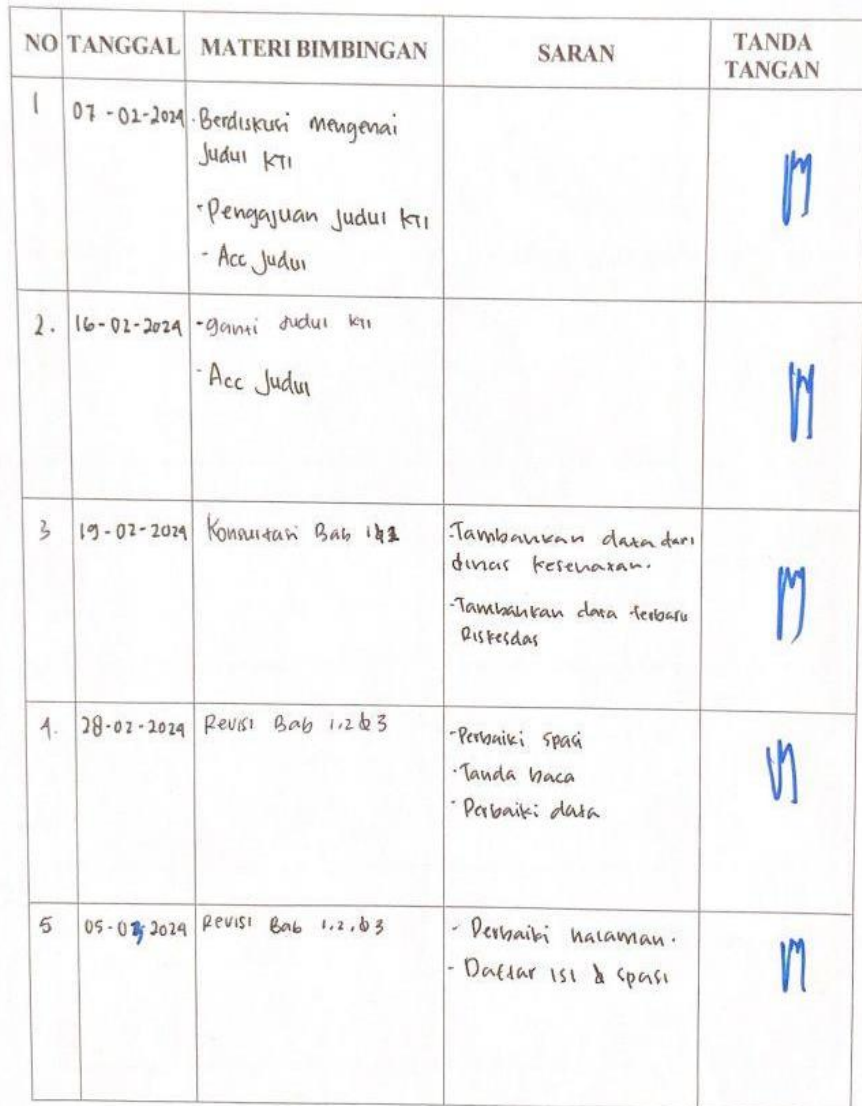 NO TANGGAL MATERI BIMBINGAN SARAN TANDA TANGAN
1 07-02-2024 - Berdiskusi mengenai
Judul KTI
- Pengajuan Judul KTI
- Acc Judul
2. 16-02-2024 - ganti Judul KTI
- Acc Judul
3 19-02-2024 Konsultasi Bab 1&2 - Tambahkan data dari
dinas kesehatan.
- Tambahkan data terbaru
Riskesdas
4. 28-02-2024 Revisi Bab 1.2 & 3 - Perbaiki spasi
- Tanda baca
- Perbaiki data
5 05-03-2024 Revisi Bab 1.2, & 3 - Perbaiki halaman.
- Daftar isi & spasi